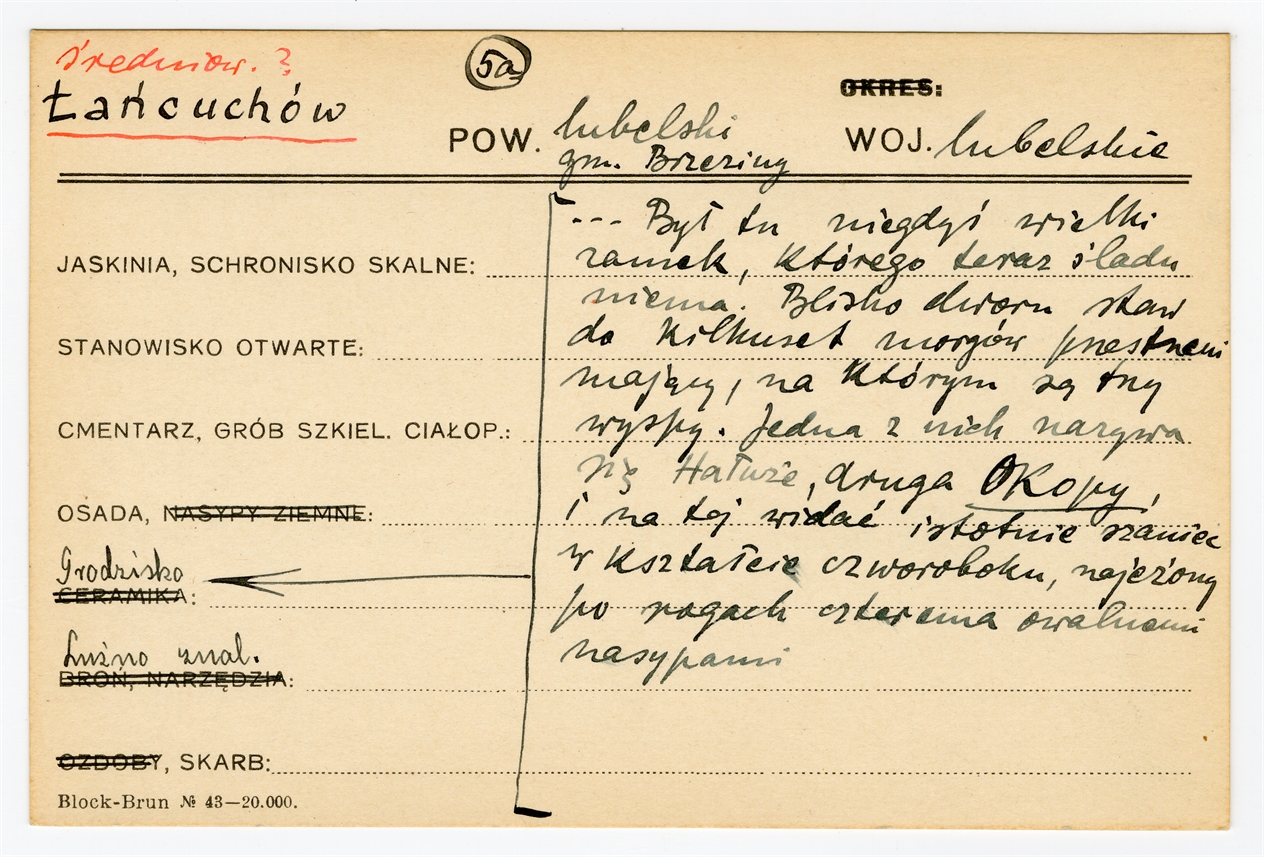 średniow. ?
Łańcuchów
5a
OKRES:
POW. lubelski
gm. Brzeziny
WOJ. lubelskie
--- Był tu niegdyś wielki
zamek, którego teraz śladu
niema. Blisko dworu staw
do kilkuset morgów przestrzeni
mający, na którym są trzy
wyspy. Jedna z nich nazywa
się Hałuże, druga Okopy,
i na tej widać istotnie szaniec
w kształcie czworoboku, najeżony
po rogach czterema owalnemi
nasypami
JASKINIA, SCHRONISKO SKALNE:
STANOWISKO OTWARTE:
CMENTARZ, GRÓB SZKIEL. CIAŁOP.:
OSADA, NASYPY ZIEMNE:
Grodzisko
CERAMIKA:
Luźno znal.
BROŃ, NARZĘDZIA:
OZDOBY, SKARB:
Block-Brun № 43—20.000.